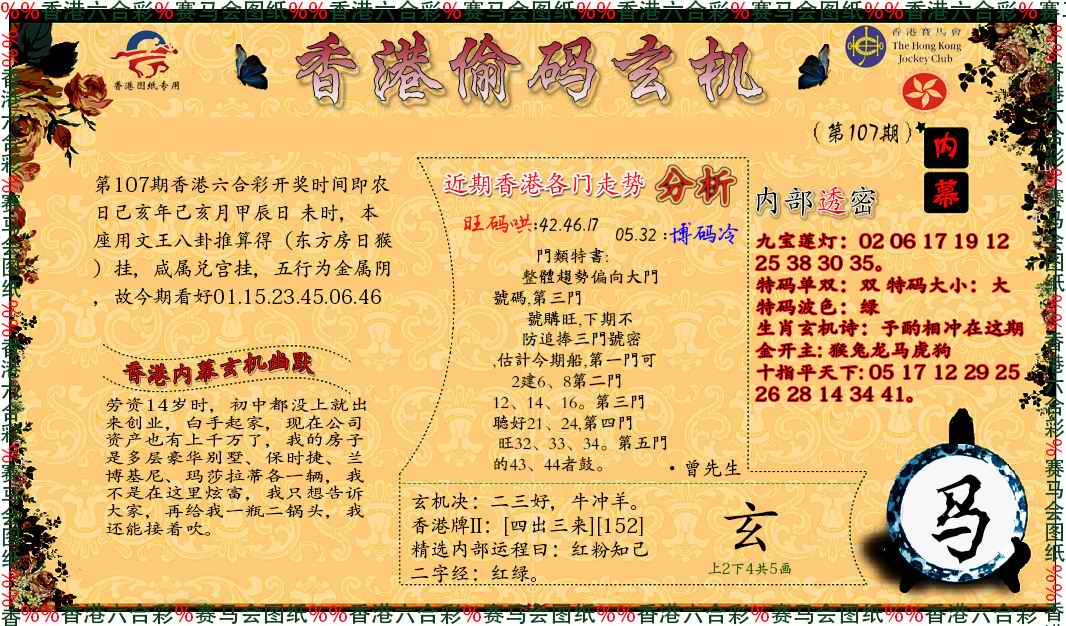 %%香港六合彩%赛马会图纸%%香港六合彩%赛马会图纸%%香港六合彩%赛马会图纸%%香港六合彩%赛马
香港图纸专用
香港偷码玄机
香港賽馬會
The Hong Kong
Jockey Club
（第107期）
内幕
第107期香港六合彩开奖时间即农
日己亥年己亥月甲辰日 未时，本
座用文王八卦推算得（东方房日猴
）挂，咸属兑宫挂，五行为金属阴
，故今期看好01.15.23.45.06.46
香港内幕玄机幽默
劳资14岁时，初中都没上就出
来创业，白手起家，现在公司
资产也有上千万了，我的房子
是多层豪华别墅、保时捷、兰
博基尼、玛莎拉蒂各一辆，我
不是在这里炫富，我只想告诉
大家，再给我一瓶二锅头，我
还能接着吹。
近期香港各门走势 分析
旺码哄:42.46.17 05.32 :博码冷
門類特書:
整體趨勢偏向大門
號碼,第三門
號購旺,下期不
防追捧三門號密
,估計今期船,第一門可
2建6、8第二門
12、14、16。第三門
聽好21、24,第四門
旺32、33、34。第五門
的43、44者鼓。
·曾先生
玄机决：二三好，牛冲羊。
香港牌II：[四出三来][152]
精选内部运程曰：红粉知己
二字经：红绿。
玄
上2下4共5画
内部透密
九宝莲灯：02 06 17 19 12
25 38 30 35。
特码单双：双 特码大小：大
特码波色：绿
生肖玄机诗：予酌相冲在这期
金开主: 猴兔龙马虎狗
十指平天下: 05 17 12 29 25
26 28 14 34 41。
马
香%%香港六合彩%赛马会图纸%%香港六合彩%赛马会图纸%%香港六合彩%赛马会图纸%%香港六合彩